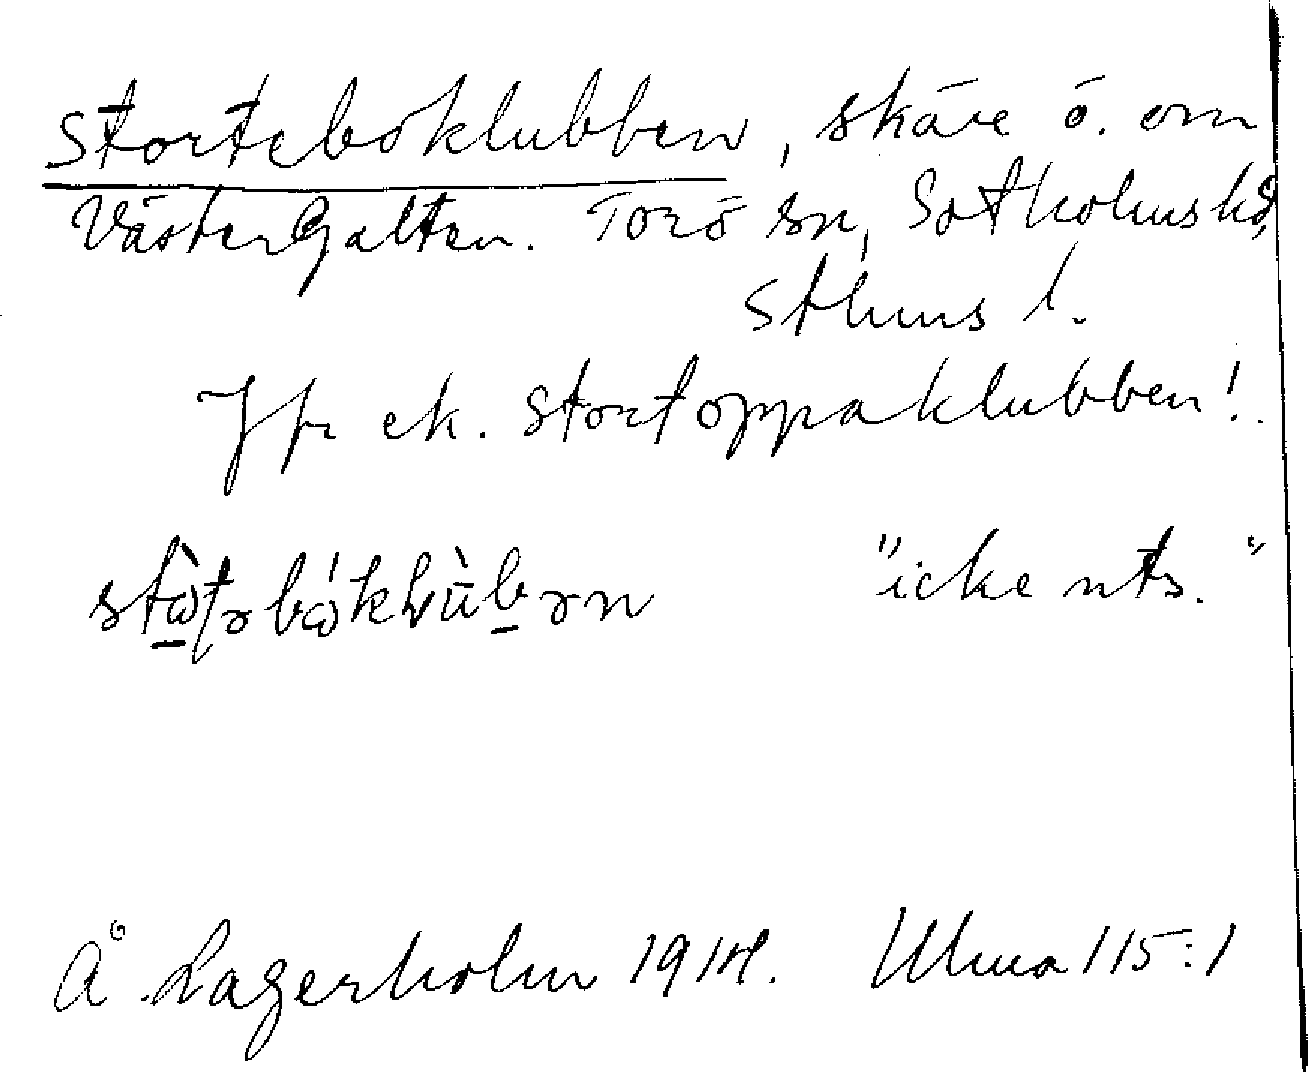 Storteboklubben, skäre ö. om
Västergalten. Torö sn, Sotholms hd,
Sthms l.
Jfr ek. Stortoppaklubben!
"icke uts."
Å Lagerholm 1914. Ulma 115:1